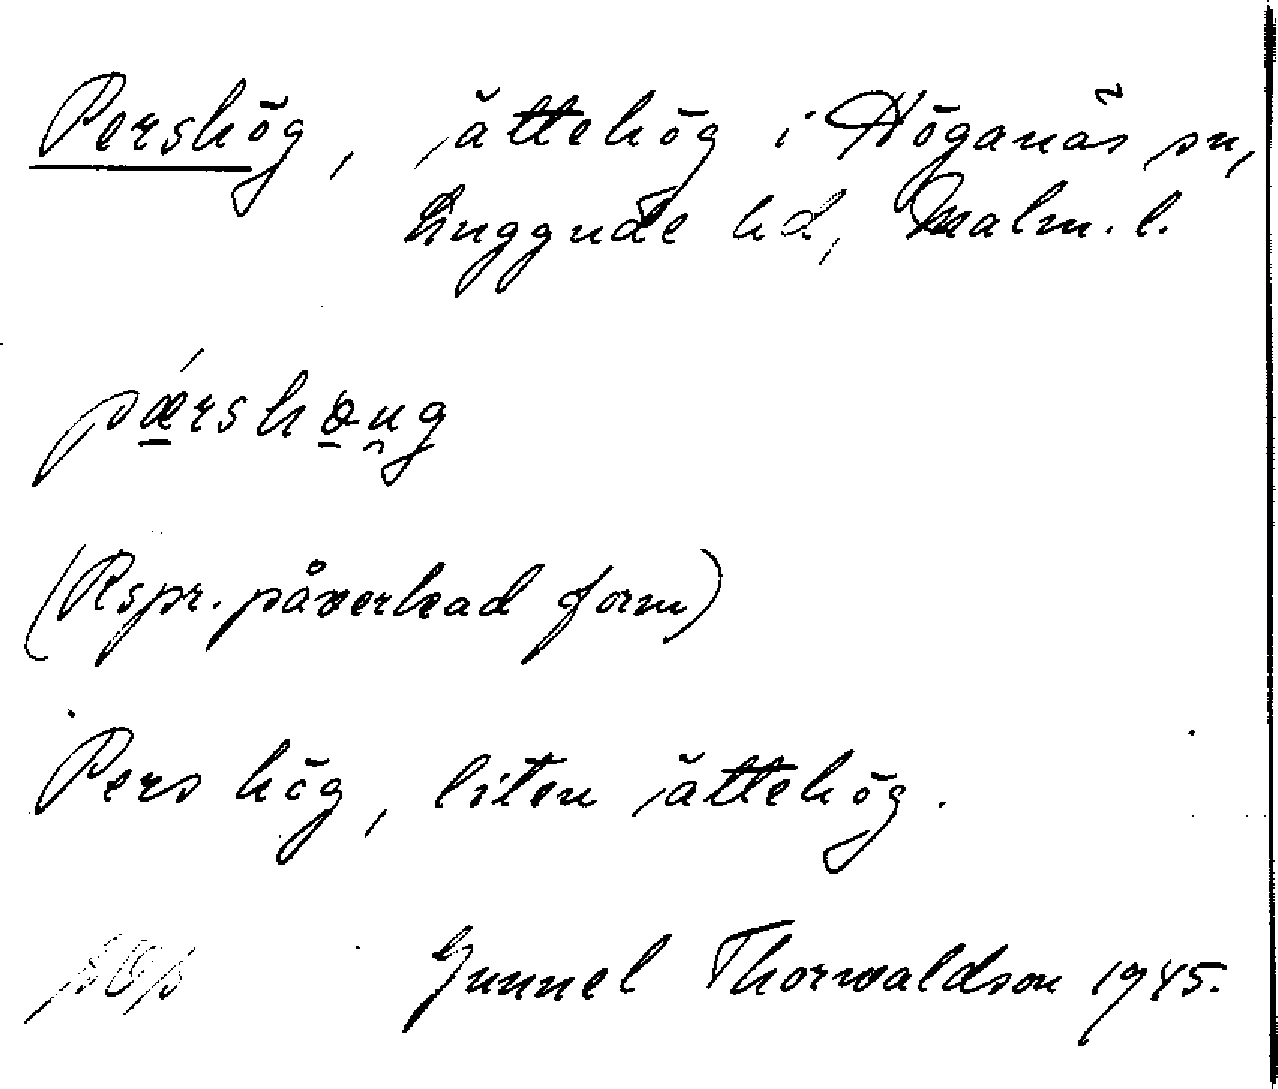 Pershög, ättehög i Höganäs sn,
Luggude hd, Malm. l.
pǽrshøu̯g
(Rspr. påverkad form)
Pers hög, liten ättehög.
Gunnel Thorwaldson 1945.